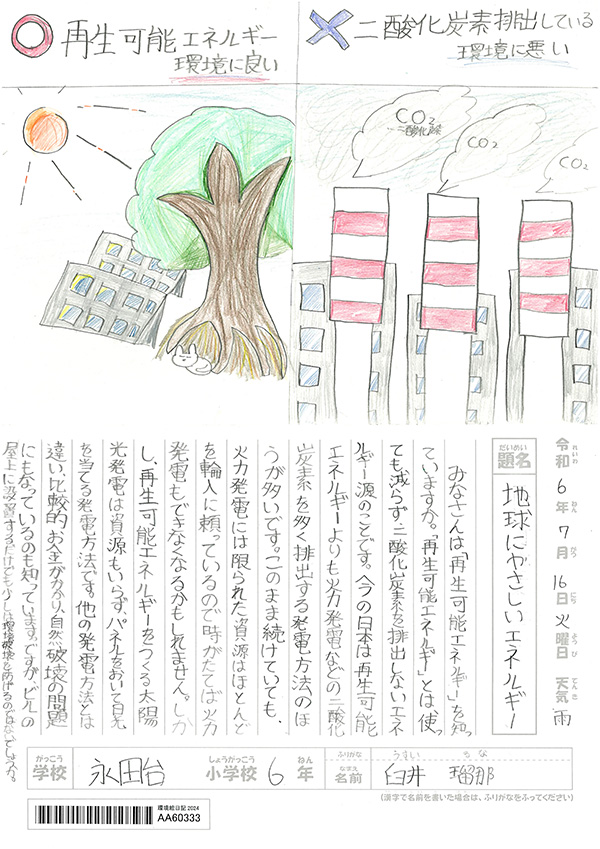 再生可能エネルギー
環境に良い
二酸化炭素排出している
環境に悪い
CO2
二酸化炭素
CO2
CO2
令和6年7月16日火曜日 天気 雨
れいわ ねん がつ にち ようび てんき
だいめい
題名
地球にやさしいエネルギー
みなさんは、「再生可能エネルギー」を知っ
ていますか。「再生可能エネルギー」とは、使っ
ても減らず、二酸化炭素を排出しないエネ
ルギー源のことです。今の日本は再生可能
エネルギーよりも火力発電などの二酸化
炭素を多く排出する発電方法のほ
うが多いです。このまま続けていても、
火力発電には限られた資源はほとんど
を輸入に頼っているので時がたてば火力
発電もできなくなるかもしれません。しか
し、再生可能エネルギーをつくる太陽
光発電は資源もいらず、パネルをおいて日光
を当てる発電方法です。他の発電方法とは
違い、比較的お金がかかり、自然破壊の問題
にもなっているのも知っています。ですが、ビルの
屋上に設置するだけでも少しは環境破壊を防げるのではないでしょうか。
がっこう
学校
永田台
しょうがっこう
小学校
6
ねん
年
ふりがな
うすい るな
なまえ
名前
臼井 瑠那
(漢字で名前を書いた場合は、ふりがなをふってください)
環境絵日記2024
AA60333